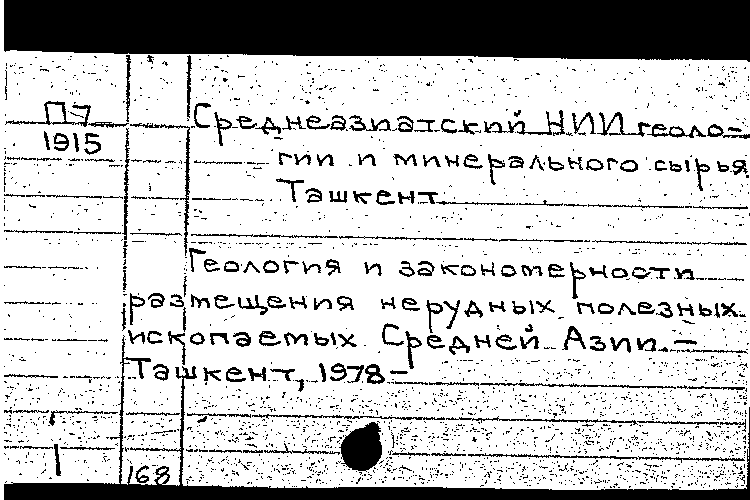 П7
1915
Среднеазиатский НИИ геоло-
гии и минерального сырья
Ташкент.
Геология и закономерности
размещения нерудных полезных
ископаемых Средней Азии. —
Ташкент, 1978 —
1
168